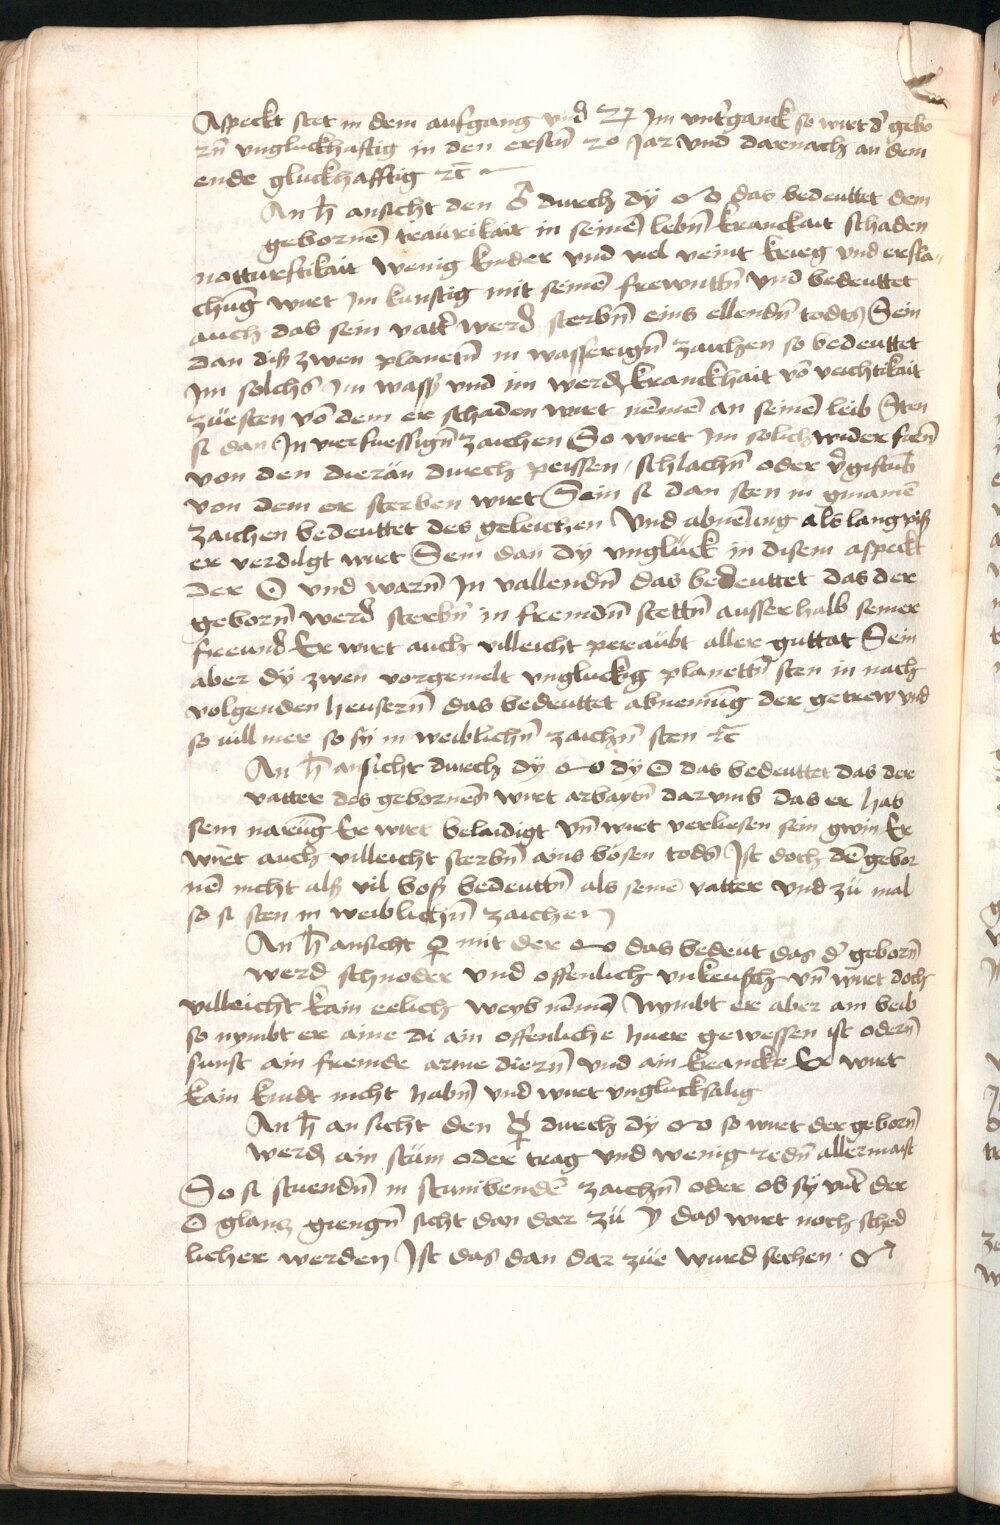 Aspeckt stet in dem aufgang und ♃ Im unt'ganck so wirt d' gebo
rn̄ ungluckhafftig in den erstn̄ 20 Jar und darnach an dem
ende gluckhafftig ꝛc̄
An ♄ ansicht den ♂ durch dÿ ☍ das bedeuttet dem
gebornē traürikait in seinē lebn̄ kranckait schaden
notturftikait wenig kinder und vil veint krieg und ersla„
chūg wirt Im kunftig mit seinē frewnttn̄ und bedeuttet
auch das sein vatt' werd sterbn̄ eins ellendn̄ todts Sein
dan diß zwen planetn̄ in wasserign̄ zaichen so bedeuttet
Im solchs Im wass' und im werdn̄ kranckhait vō veichtikait
züesten vō dem er schaden wirt nēmē an seinē leib Sten
si dan In vierfuessign̄ zaichen So wirt Im solich wider farn̄
von den dierän durch peissen / schlachn̄ oder v'giftūs
von dem er sterben wirt Sein si dan sten in
zaichen bedeuttet des geleichen Und abnēung als lang piß
er verdilgt wirt Sein dan dÿ unglück in disem aspeckt
der ☉ und warn̄ In vallendn̄ das bedeuttet das der
geborn̄ werd sterbn̄ in fremdn̄ stettn̄ ausserhalb seiner
freund Er wirt auch villeicht peraübt aller guttat Sein
aber dÿ zwen vorgemelt ungluckig planettn̄ sten in nach
volgenden heusern̄ das bedeuttet abnemūg der getrew und
so vill mer so sÿ in weiblichn̄ zaichn̄ sten ꝛc̄
An ♄ ansicht durch dÿ ☍ dÿ ☉ das bedeuttet das der
vatter des gebornēs wirt arbaytn̄ dar umb das er hab
sein narūg Er wirt belaidigt un̄ wirt verliesen sein gwin Er
wirt auch villeicht sterbn̄ ains bösen tods Ist doch dē gebor
nē nicht alß vil boß bedeuttn̄ als seinē vatter und zü mal
so si sten in weiblichn̄ zaichen
An ♄ ansicht ♀ mit der ☍ das bedeut das d' geborn̄
werd schnoder und offenlich unkeusch un̄ wirt doch
villeicht kain eelich weyb nēmē Nymbt er aber ain beib
so nymbt er aine di ain offenliche huer gewessen ist odern̄
sunst ain fremde arme diern̄ und ain krancke Er wirt
kain kindt nicht habn̄ und wirt unglucksalig
An ♄ an sicht den ☿ durch dÿ ☍ so wirt der geborn̄
werdn̄ ain stüm oder trag und wenig redn̄ allermaist
So si stuendn̄ in stumbendē zaichn̄ oder ob sÿ unt' der
☉ glancz giengn̄ sicht dan dar zü ☽ das wirt noch sched
licher werden Ist das dan dar züe wurd sechen · ♂